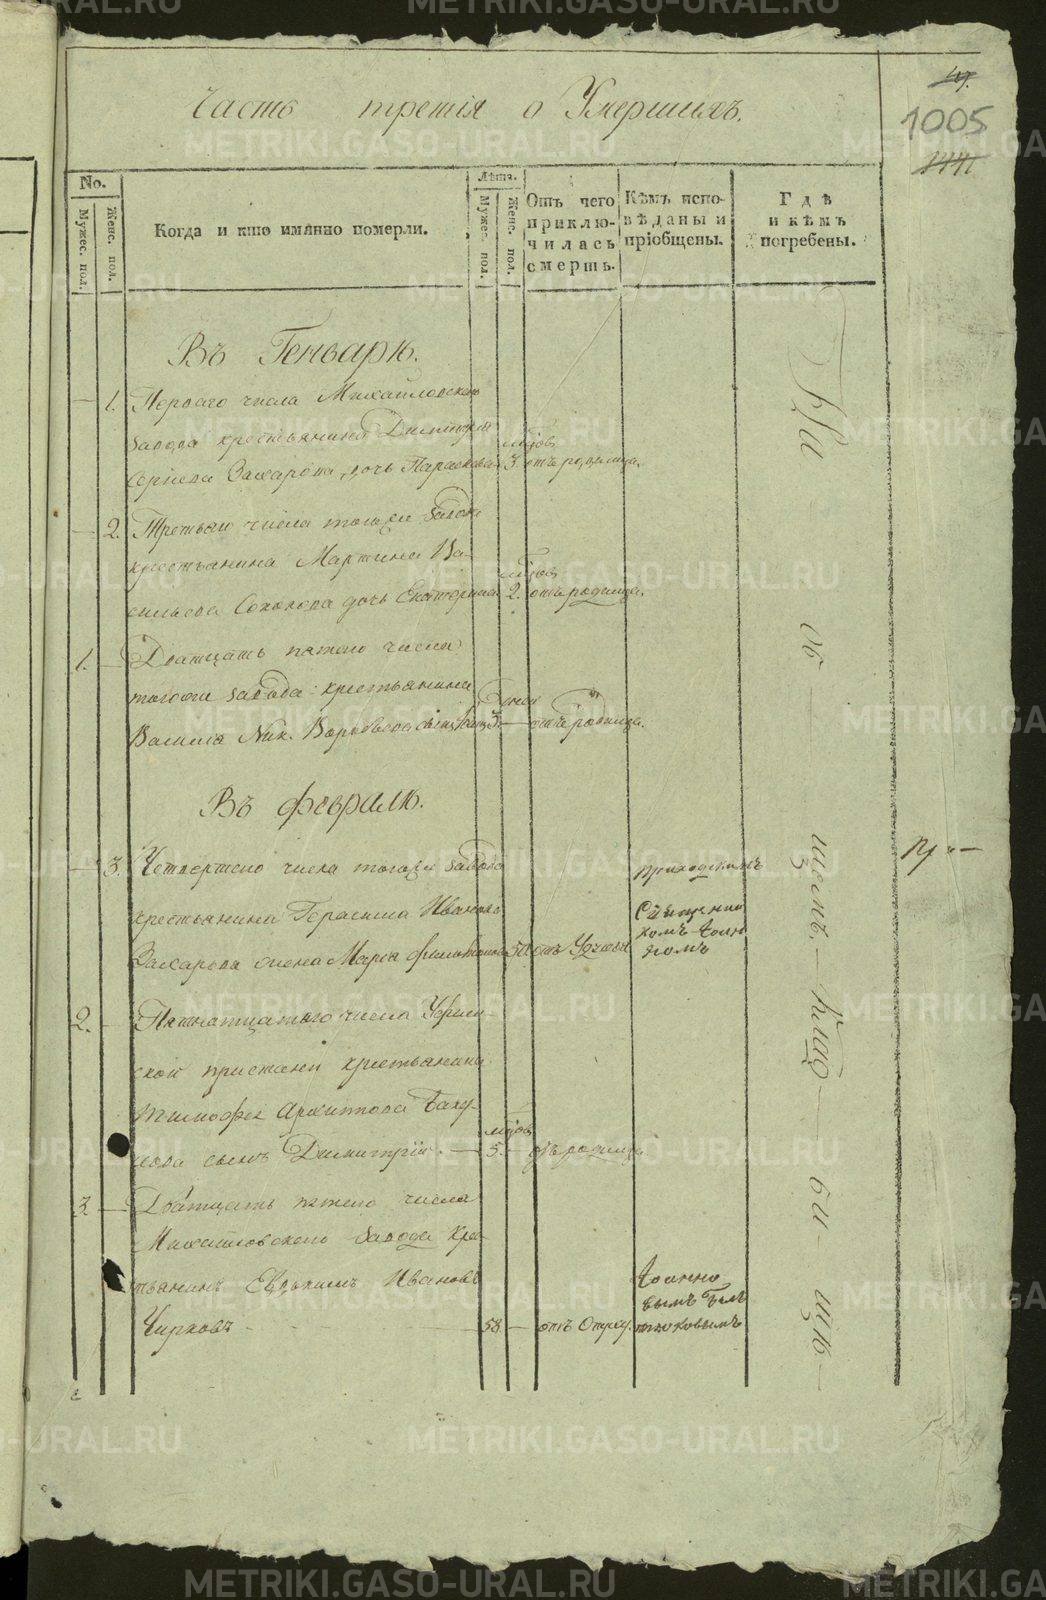 Часть третія о Умершихъ.
1005
No.
Мужес. пол.
Женс. пол.
Когда и кто имянно померли.
Лѣта.
Мужес. пол.
Женс. пол.
Отъ чего
приклю-
чилась
смерть.
Кѣмъ испо-
вѣданы и
пріобщены.
Гдѣ
и кѣмъ
погребены.
Въ Генварѣ.
1. Перваго числа Михайловскаго
завода крестьянина Димитрія
Сергѣева Захарова дочь Параскева
мѣсяцов
3. отъ родимца.
2. Третьяго числа тогоже завода
крестьянина Мартина Ва-
сильева Соколова дочь Екатерина
мѣсяцов
2. отъ родимца.
1. Дватцать пятаго числа
тогоже завода крестьянина
Василья Ник. Воробьева сынъ
дней
3. отъ родимца.
Въ февралѣ.
3. Четвертаго числа тогоже завода
крестьянина Герасима Иванова
Захарова жена Марья
50 отъ
приходскимъ
Священни
комъ Іоан
номъ
2. Пятнатцатаго числа Уфим-
ской пристани крестьянина
Тимофея Архипова Баку-
нова сынъ Димитрій.
5. отъ родимца
3. Дватцать пятаго числа
Михайловскаго завода крес-
тьянинъ Евдокимъ Ивановъ
Чирковъ
58 отъ
Іоанно
вымъ
На об щемъ Клад би щѣ
При
METRIKI.GASO-URAL.RU